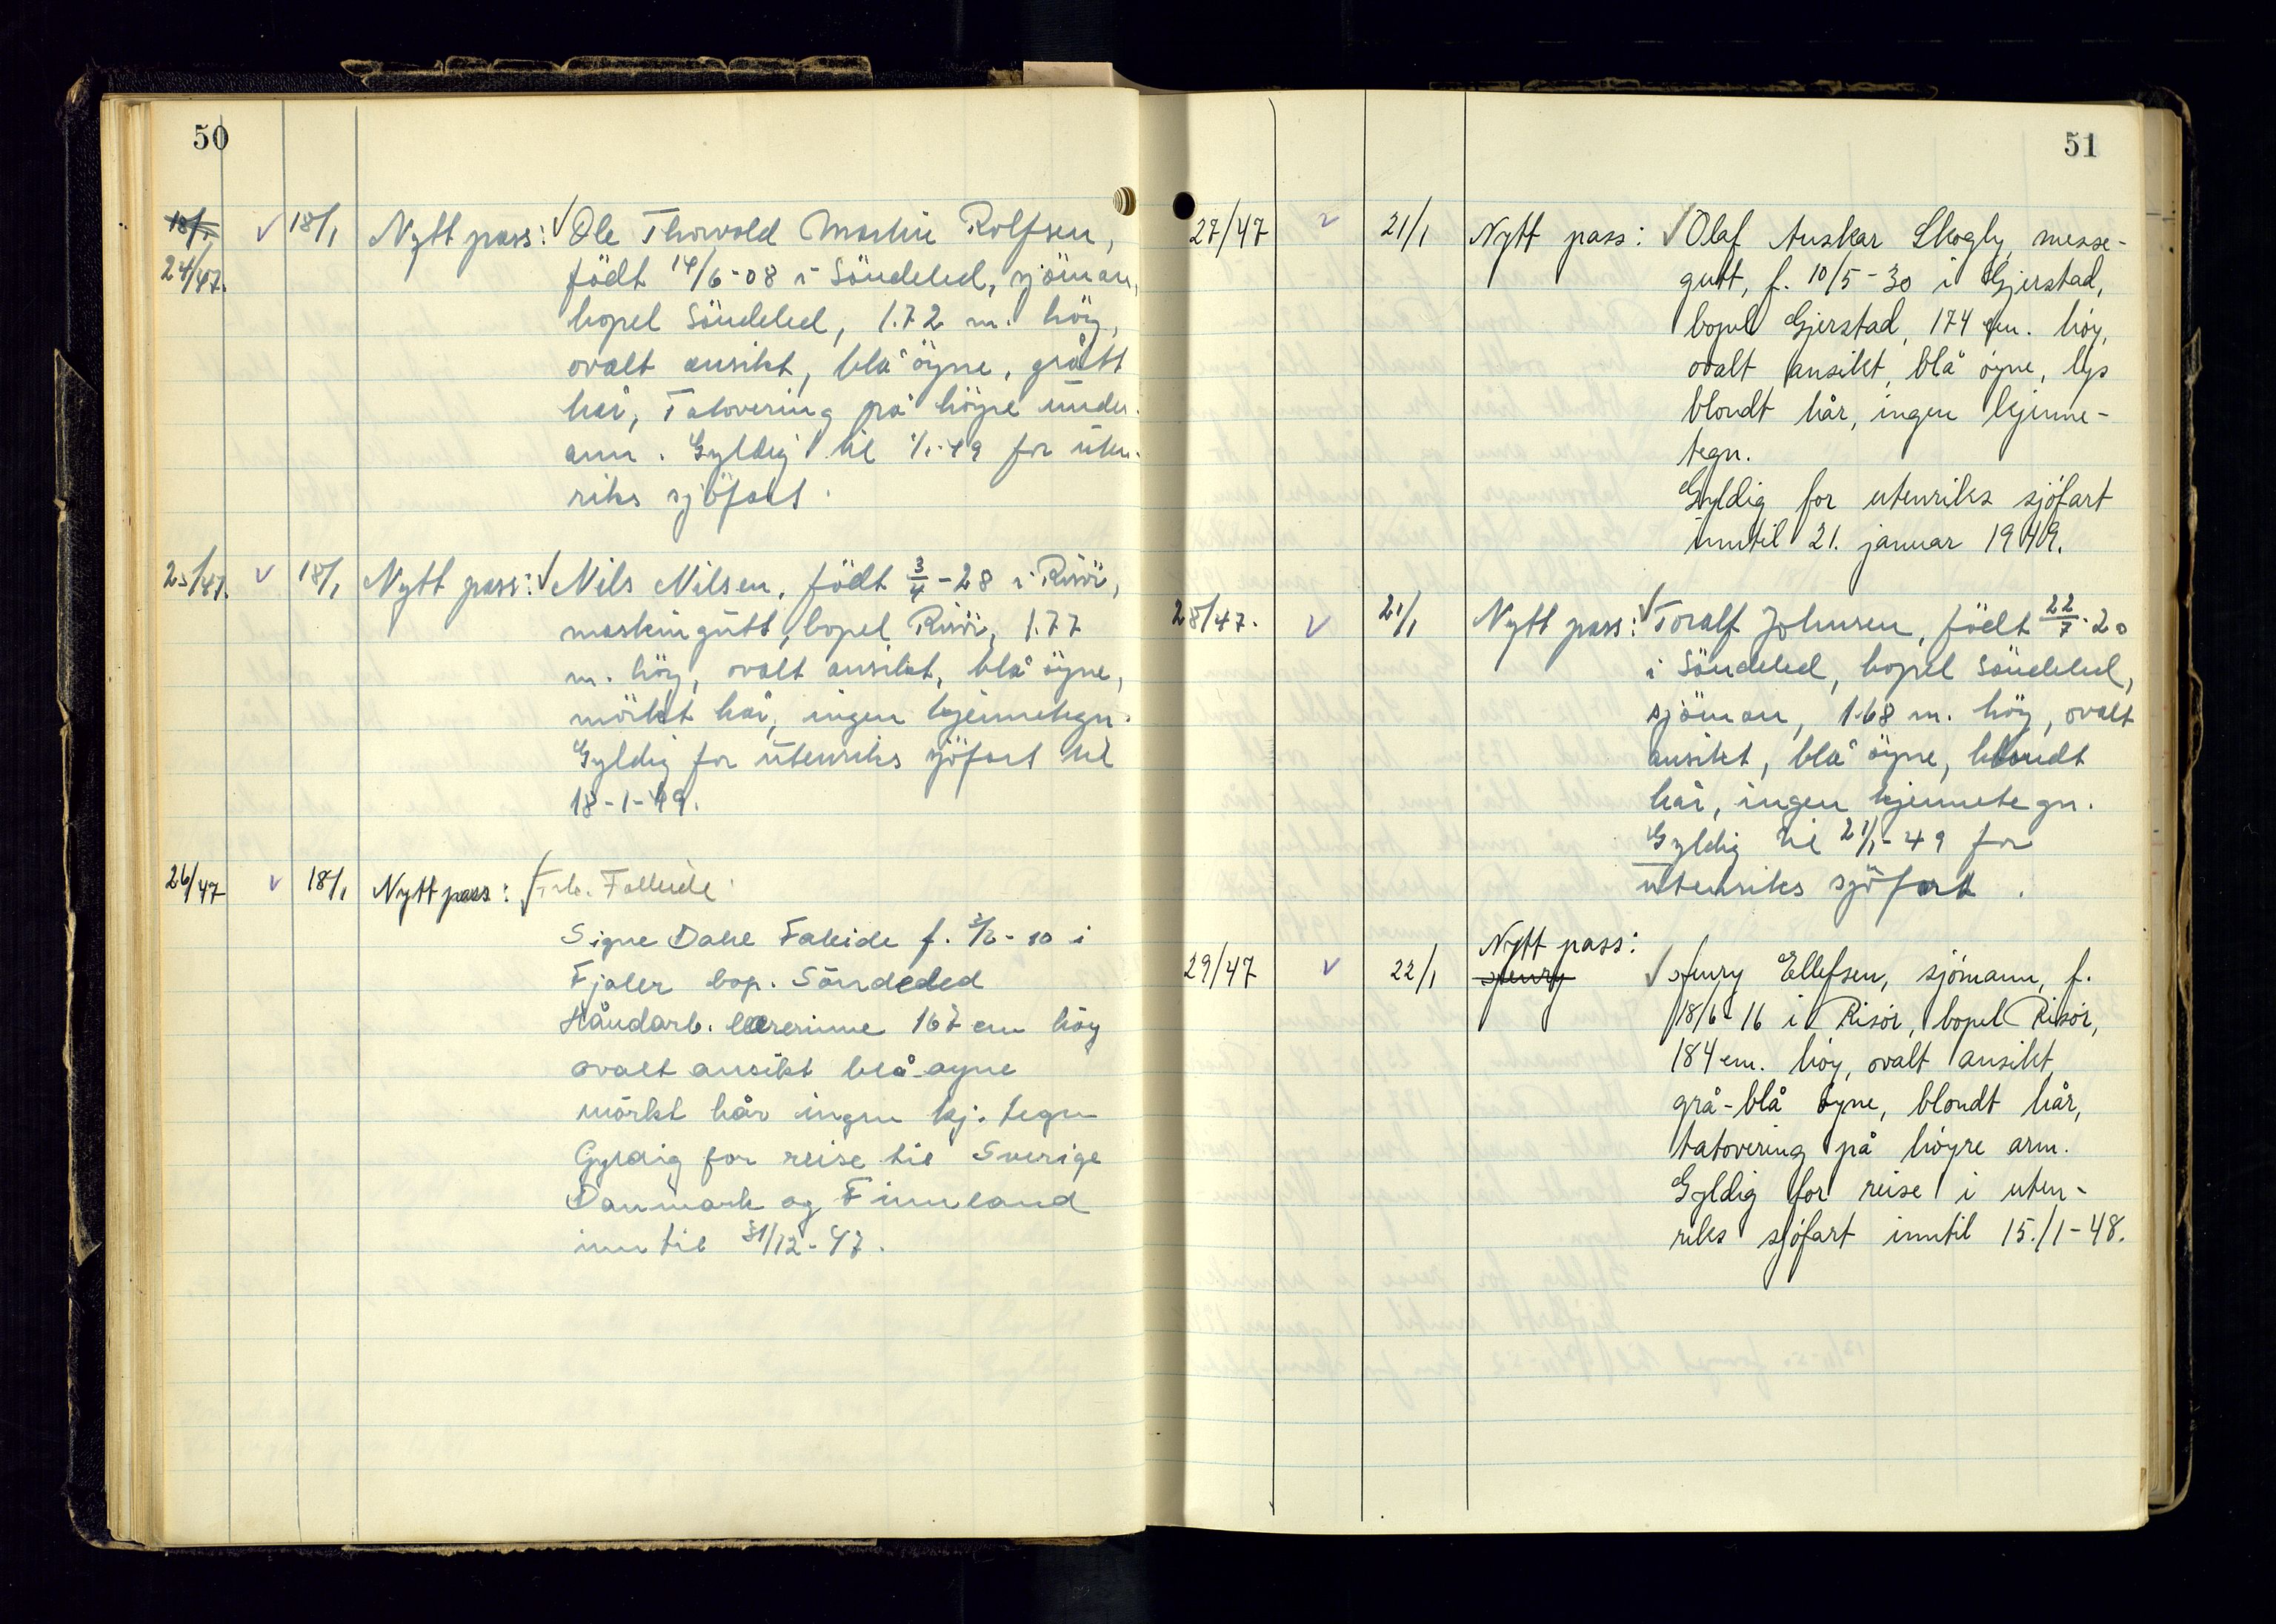 50
18/1
24/47. v 18/1 Nytt pass: √ Ole Thorvald Martin Rolfsen,
födt 14/6-08 i Söndeled, sjöman,
bopel Söndeled, 1.72 m. höy,
ovalt ansikt, blå öyne, grått
hår, Tatovering på höyre under-
arm. Gyldig til 1/1-49 for uten-
riks sjöfart.
25/47. v 18/1 Nytt pass: √ Nils Nilsen, födt 3/4-28 i Risör,
maskingutt, bopel Risör, 1.77
m. höy, ovalt ansikt, blå öyne,
mörkt hår, ingen kjennetegn.
Gyldig for utenriks sjöfart til
18-1-49.
26/47 v 18/1 Nytt pass: √ Frk. Falleide
Signe Dahl Faleide f. 3/2-10 i
Fjaler bop. Söndeled
Håndarb. lærerinne 167 cm höy
ovalt ansikt blå öyne
mörkt hår ingen kj. tegn
Gyldig for reise til Sverige
Danmark og Finnland
inntil 31/12-47.
51
27/47 v 21/1 Nytt pass: √ Olaf Anskar Skogly, messe-
gutt, f. 10/5-30 i Gjerstad,
bopel Gjerstad, 174 cm. höy,
ovalt ansikt, blå öyne, lys
blondt hår, ingen kjenne-
tegn.
Gyldig for utenriks sjöfart
inntil 21. januar 1949.
28/47. v 21/1 Nytt pass: √ Toralf Johnsen, födt 22/7-20
i Söndeled, bopel Söndeled,
sjöman, 1.68 m. höy, ovalt
ansikt, blå öyne, blondt
hår, ingen kjennetegn.
Gyldig til 21/1-49 for
utenriks sjöfart.
Nytt pass:
29/47 v 22/1 Henry √ Henry Ellefsen, sjömann, f.
18/6-16 i Risör, bopel Risör,
184 cm. höy, ovalt ansikt,
grå-blå öyne, blondt hår,
tatovering på höyre arm.
Gyldig for reise i uten-
riks sjöfart inntil 15./1-48.